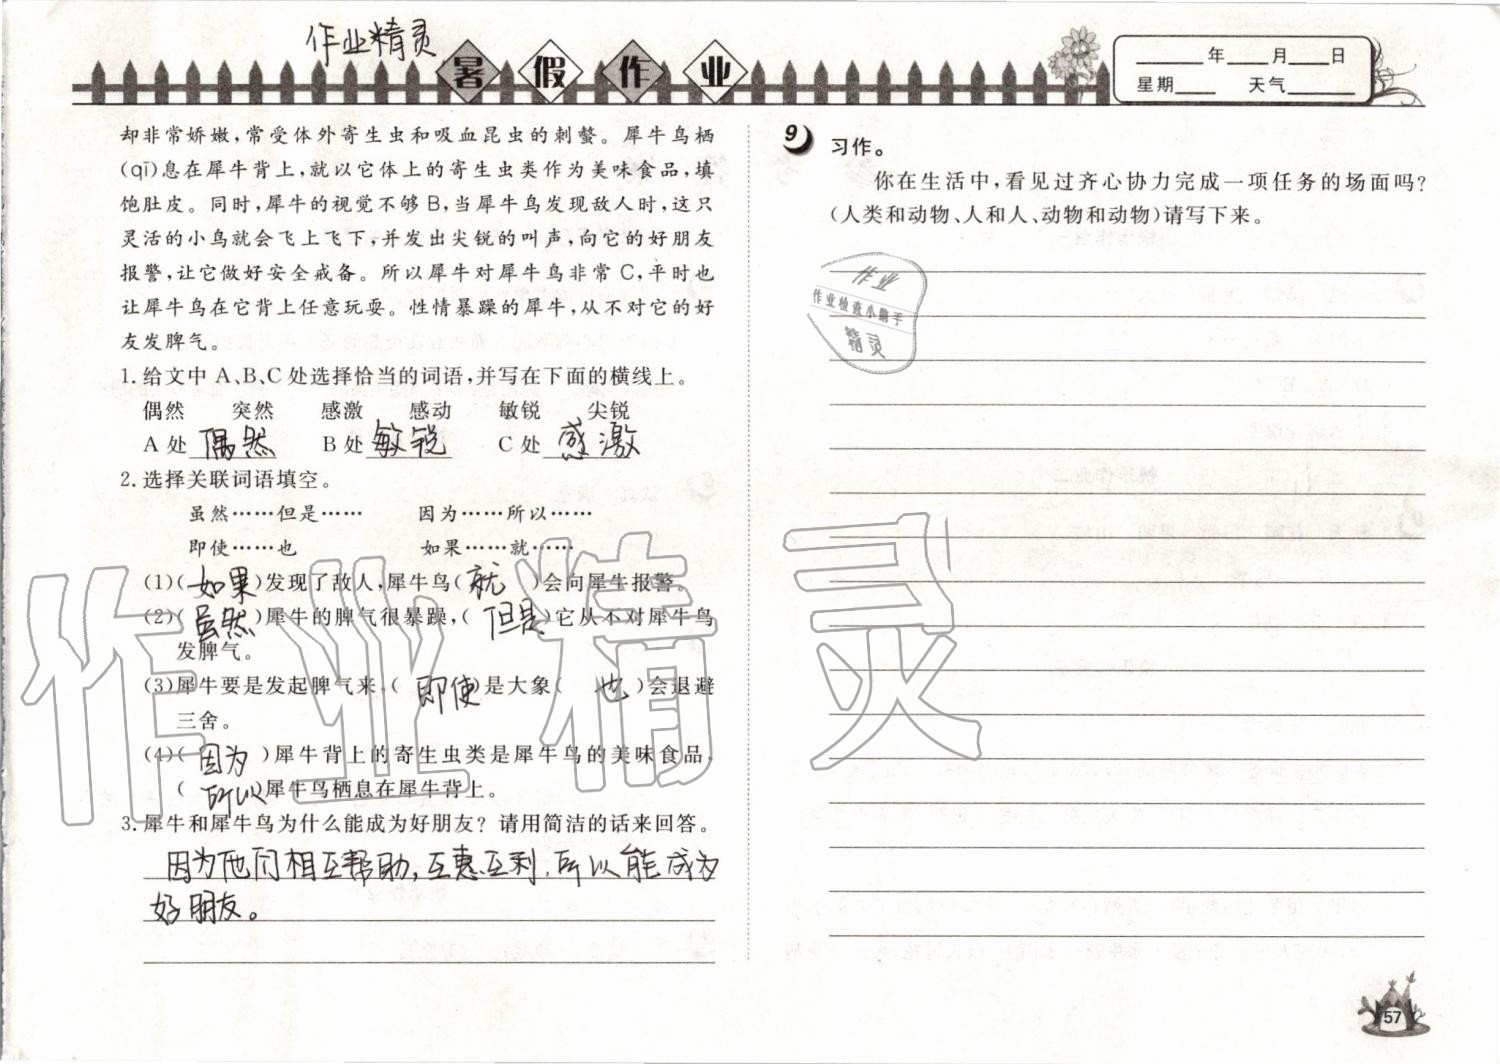 作业精灵
暑假作业
____年____月____日
星期____ 天气____
却非常娇嫩,常受体外寄生虫和吸血昆虫的刺螫。犀牛鸟栖
(qī)息在犀牛背上,就以它体上的寄生虫类作为美味食品,填
饱肚皮。同时,犀牛的视觉不够 B,当犀牛鸟发现敌人时,这只
灵活的小鸟就会飞上飞下,并发出尖锐的叫声,向它的好朋友
报警,让它做好安全戒备。所以犀牛对犀牛鸟非常 C,平时也
让犀牛鸟在它背上任意玩耍。性情暴躁的犀牛,从不对它的好
友发脾气。
1.给文中 A、B、C 处选择恰当的词语,并写在下面的横线上。
偶然 突然 感激 感动 敏锐 尖锐
A 处 偶然 B 处 敏锐 C 处 感激
2.选择关联词语填空。
虽然……但是…… 因为……所以……
即使……也 如果……就……
(1)(如果)发现了敌人,犀牛鸟(就)会向犀牛报警。
(2)(虽然)犀牛的脾气很暴躁,(但是)它从不对犀牛鸟
发脾气。
(3)犀牛要是发起脾气来,(即使)是大象(也)会退避
三舍。
(4)(因为)犀牛背上的寄生虫类是犀牛鸟的美味食品,
(所以)犀牛鸟栖息在犀牛背上。
3.犀牛和犀牛鸟为什么能成为好朋友?请用简洁的话来回答。
因为他们相互帮助,互惠互利,所以能成为
好朋友。
9 习作。
你在生活中,看见过齐心协力完成一项任务的场面吗?
(人类和动物、人和人、动物和动物)请写下来。
作业
作业检查小助手
精灵
作业精灵
57